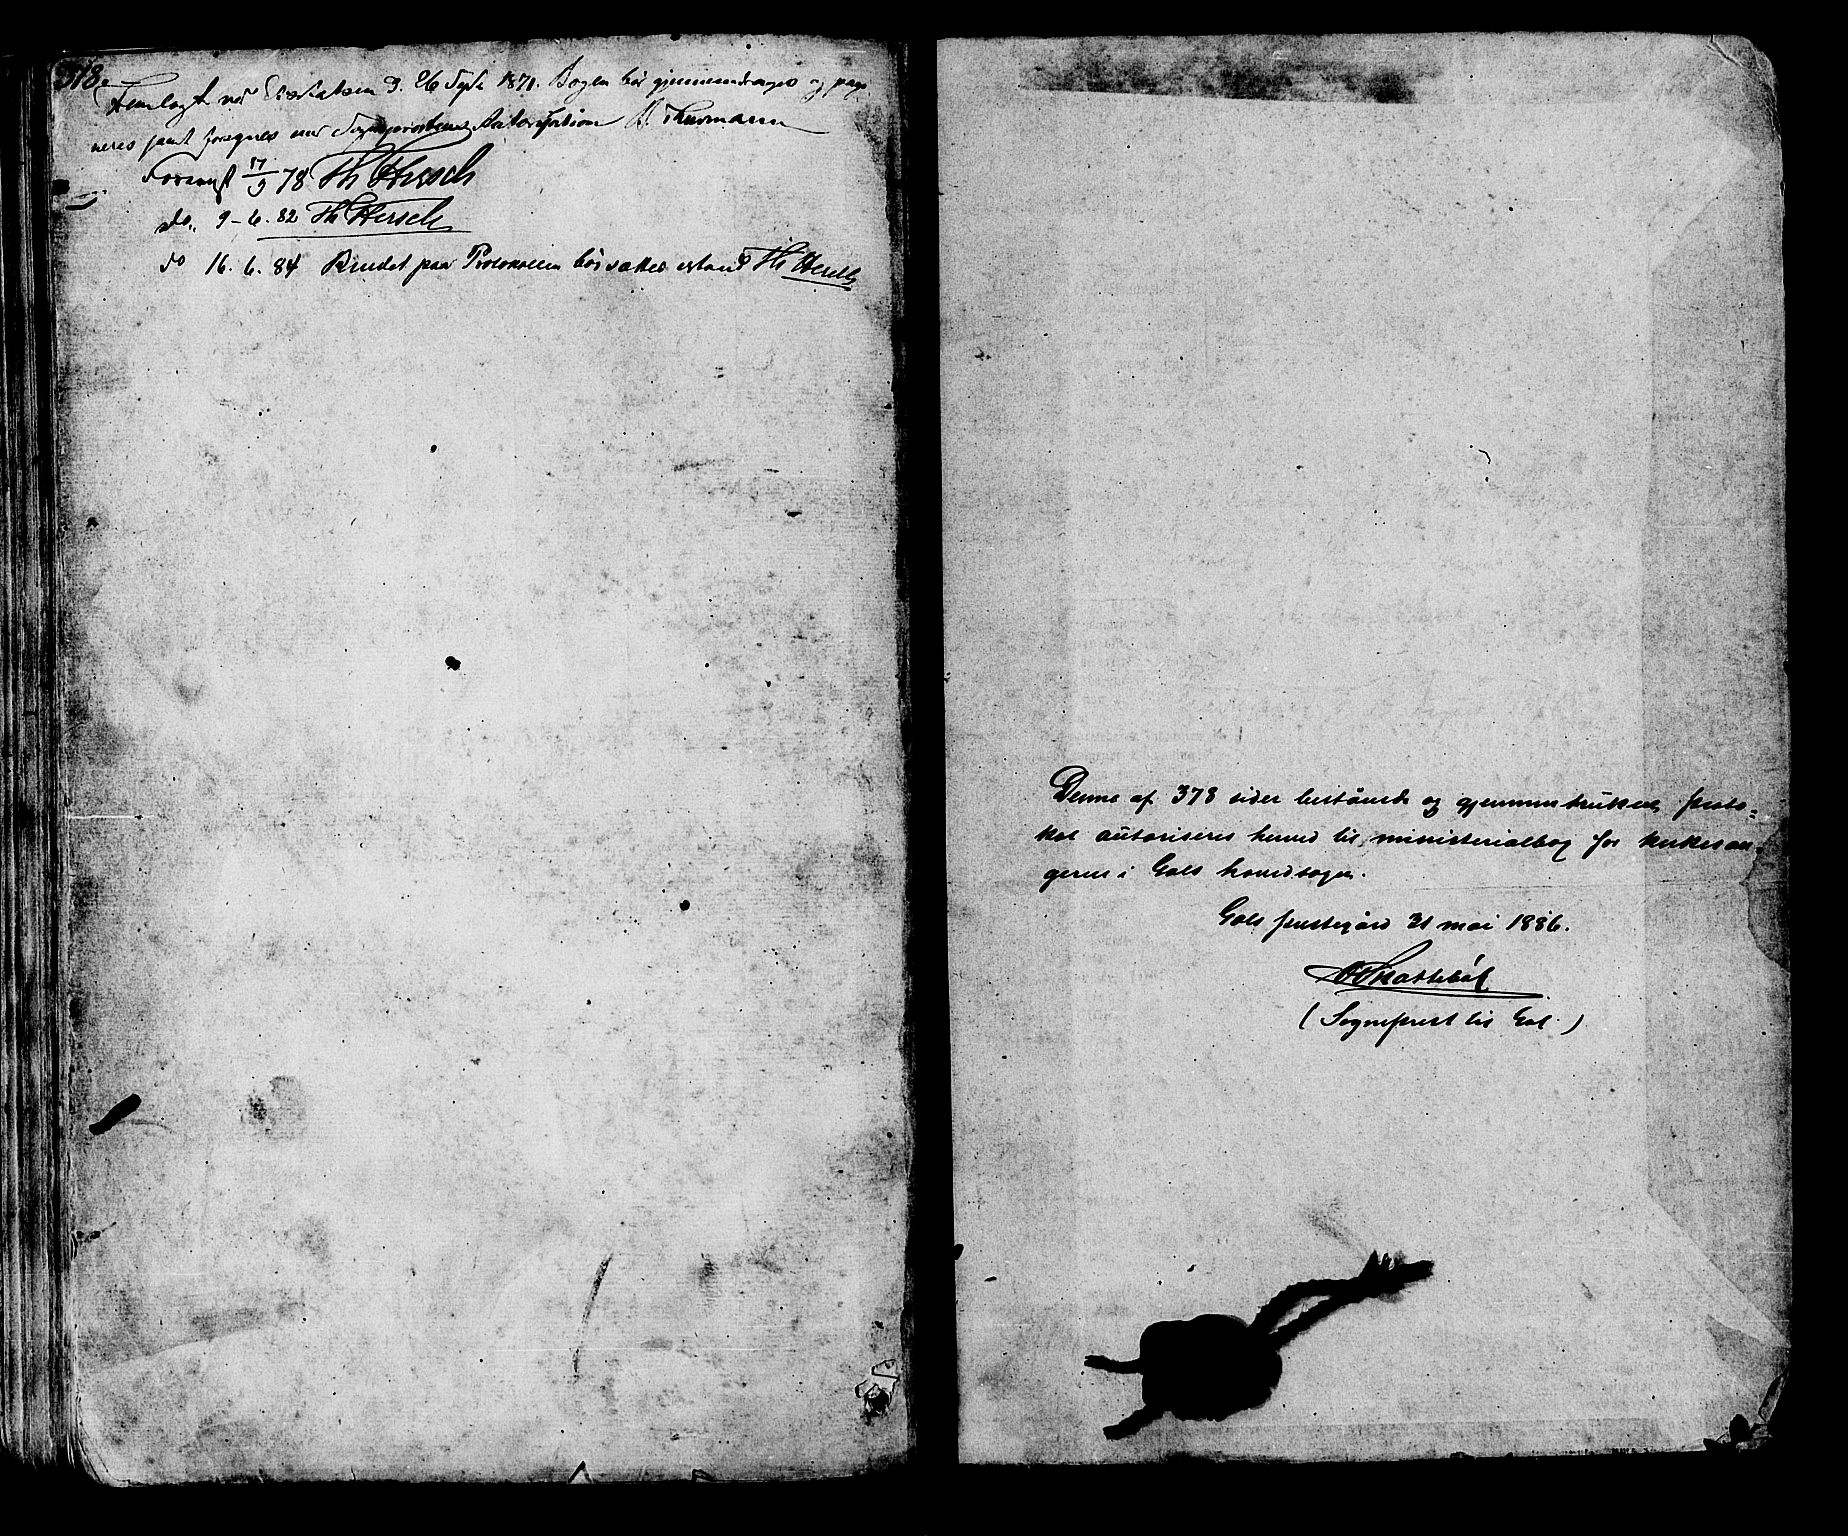 378.
Fremlagt ved Visitatsen d. 26 Septr 1871. Bogen bør gjennemdrages og pagi
neres samt forsynes med Sogneprestens Autorisation Thurmann
Forevist 17/9 78 Th Hersch
do. 9-6. 82 Th Hersch
do 16. 6. 84 Bindet paa Protocollen bør sættes istand Th Hersch
Denne af 378 sider bestående og gjennemtrukken proto=
kol autoriseres herved til ministerialbog for kirkesan-
geren i Gols hovedsogn.
Gols prestegård 31 mai 1886.
(Sogneprest til Gol.)